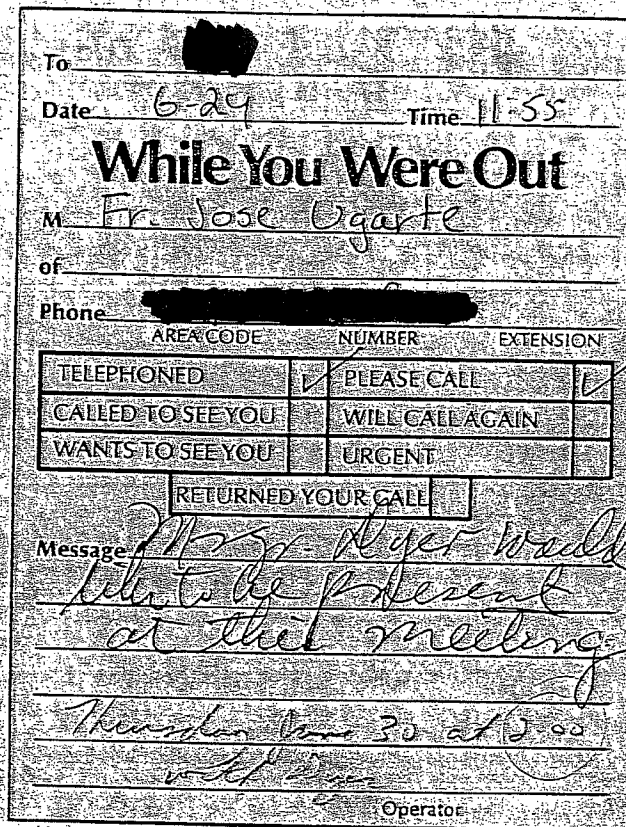 To
Date 6-29 Time 11-55
While You Were Out
M Fr. Jose Ugarte
of
Phone
AREA CODE NUMBER EXTENSION
TELEPHONED ✓ PLEASE CALL ✓
CALLED TO SEE YOU WILL CALL AGAIN
WANTS TO SEE YOU URGENT
RETURNED YOUR CALL
Message Msgr. Dyer would
like to be present
at this meeting
Thursday June 30 at 2:00
Operator